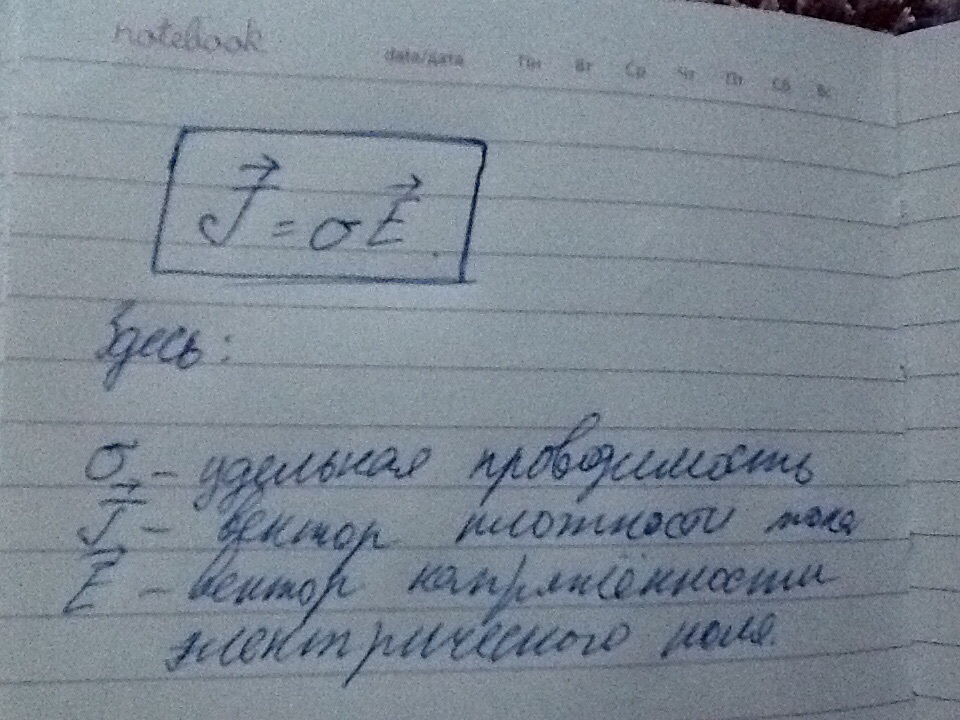 notebook
data/дата Пн Вт Ср Чт Пт Сб Вс
J⃗ = σE⃗
Здесь:
σ – удельная проводимость
J⃗ – вектор плотности тока
E⃗ – вектор напряжённости
электрического поля.